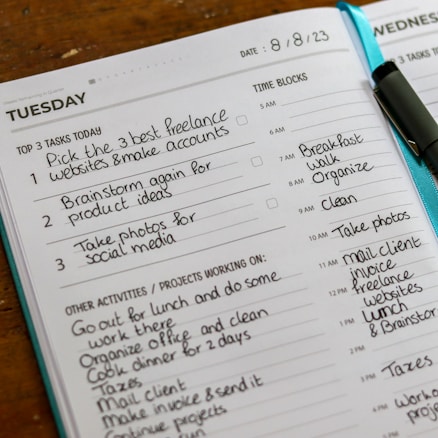 TUESDAY
DATE : 8/8/23
TOP 3 TASKS TODAY
1 Pick the 3 best freelance
websites & make accounts
2 Brainstorm again for
product ideas
3 Take photos for
social media
OTHER ACTIVITIES / PROJECTS WORKING ON:
Go out for lunch and do some
work there
Organize office and clean
Cook dinner for 2 days
Taxes
Mail client
Make invoice & send it
Continue projects
TIME BLOCKS
5 AM
6 AM
7 AM Breakfast
walk
8 AM Organize
9 AM Clean
10 AM Take photos
11 AM Mail client
invoice
12 PM freelance
websites
1 PM Lunch
& Brainstor
2 PM
3 PM Taxes
4 PM Worko
proje
WEDNES
TOP 3 TASKS T